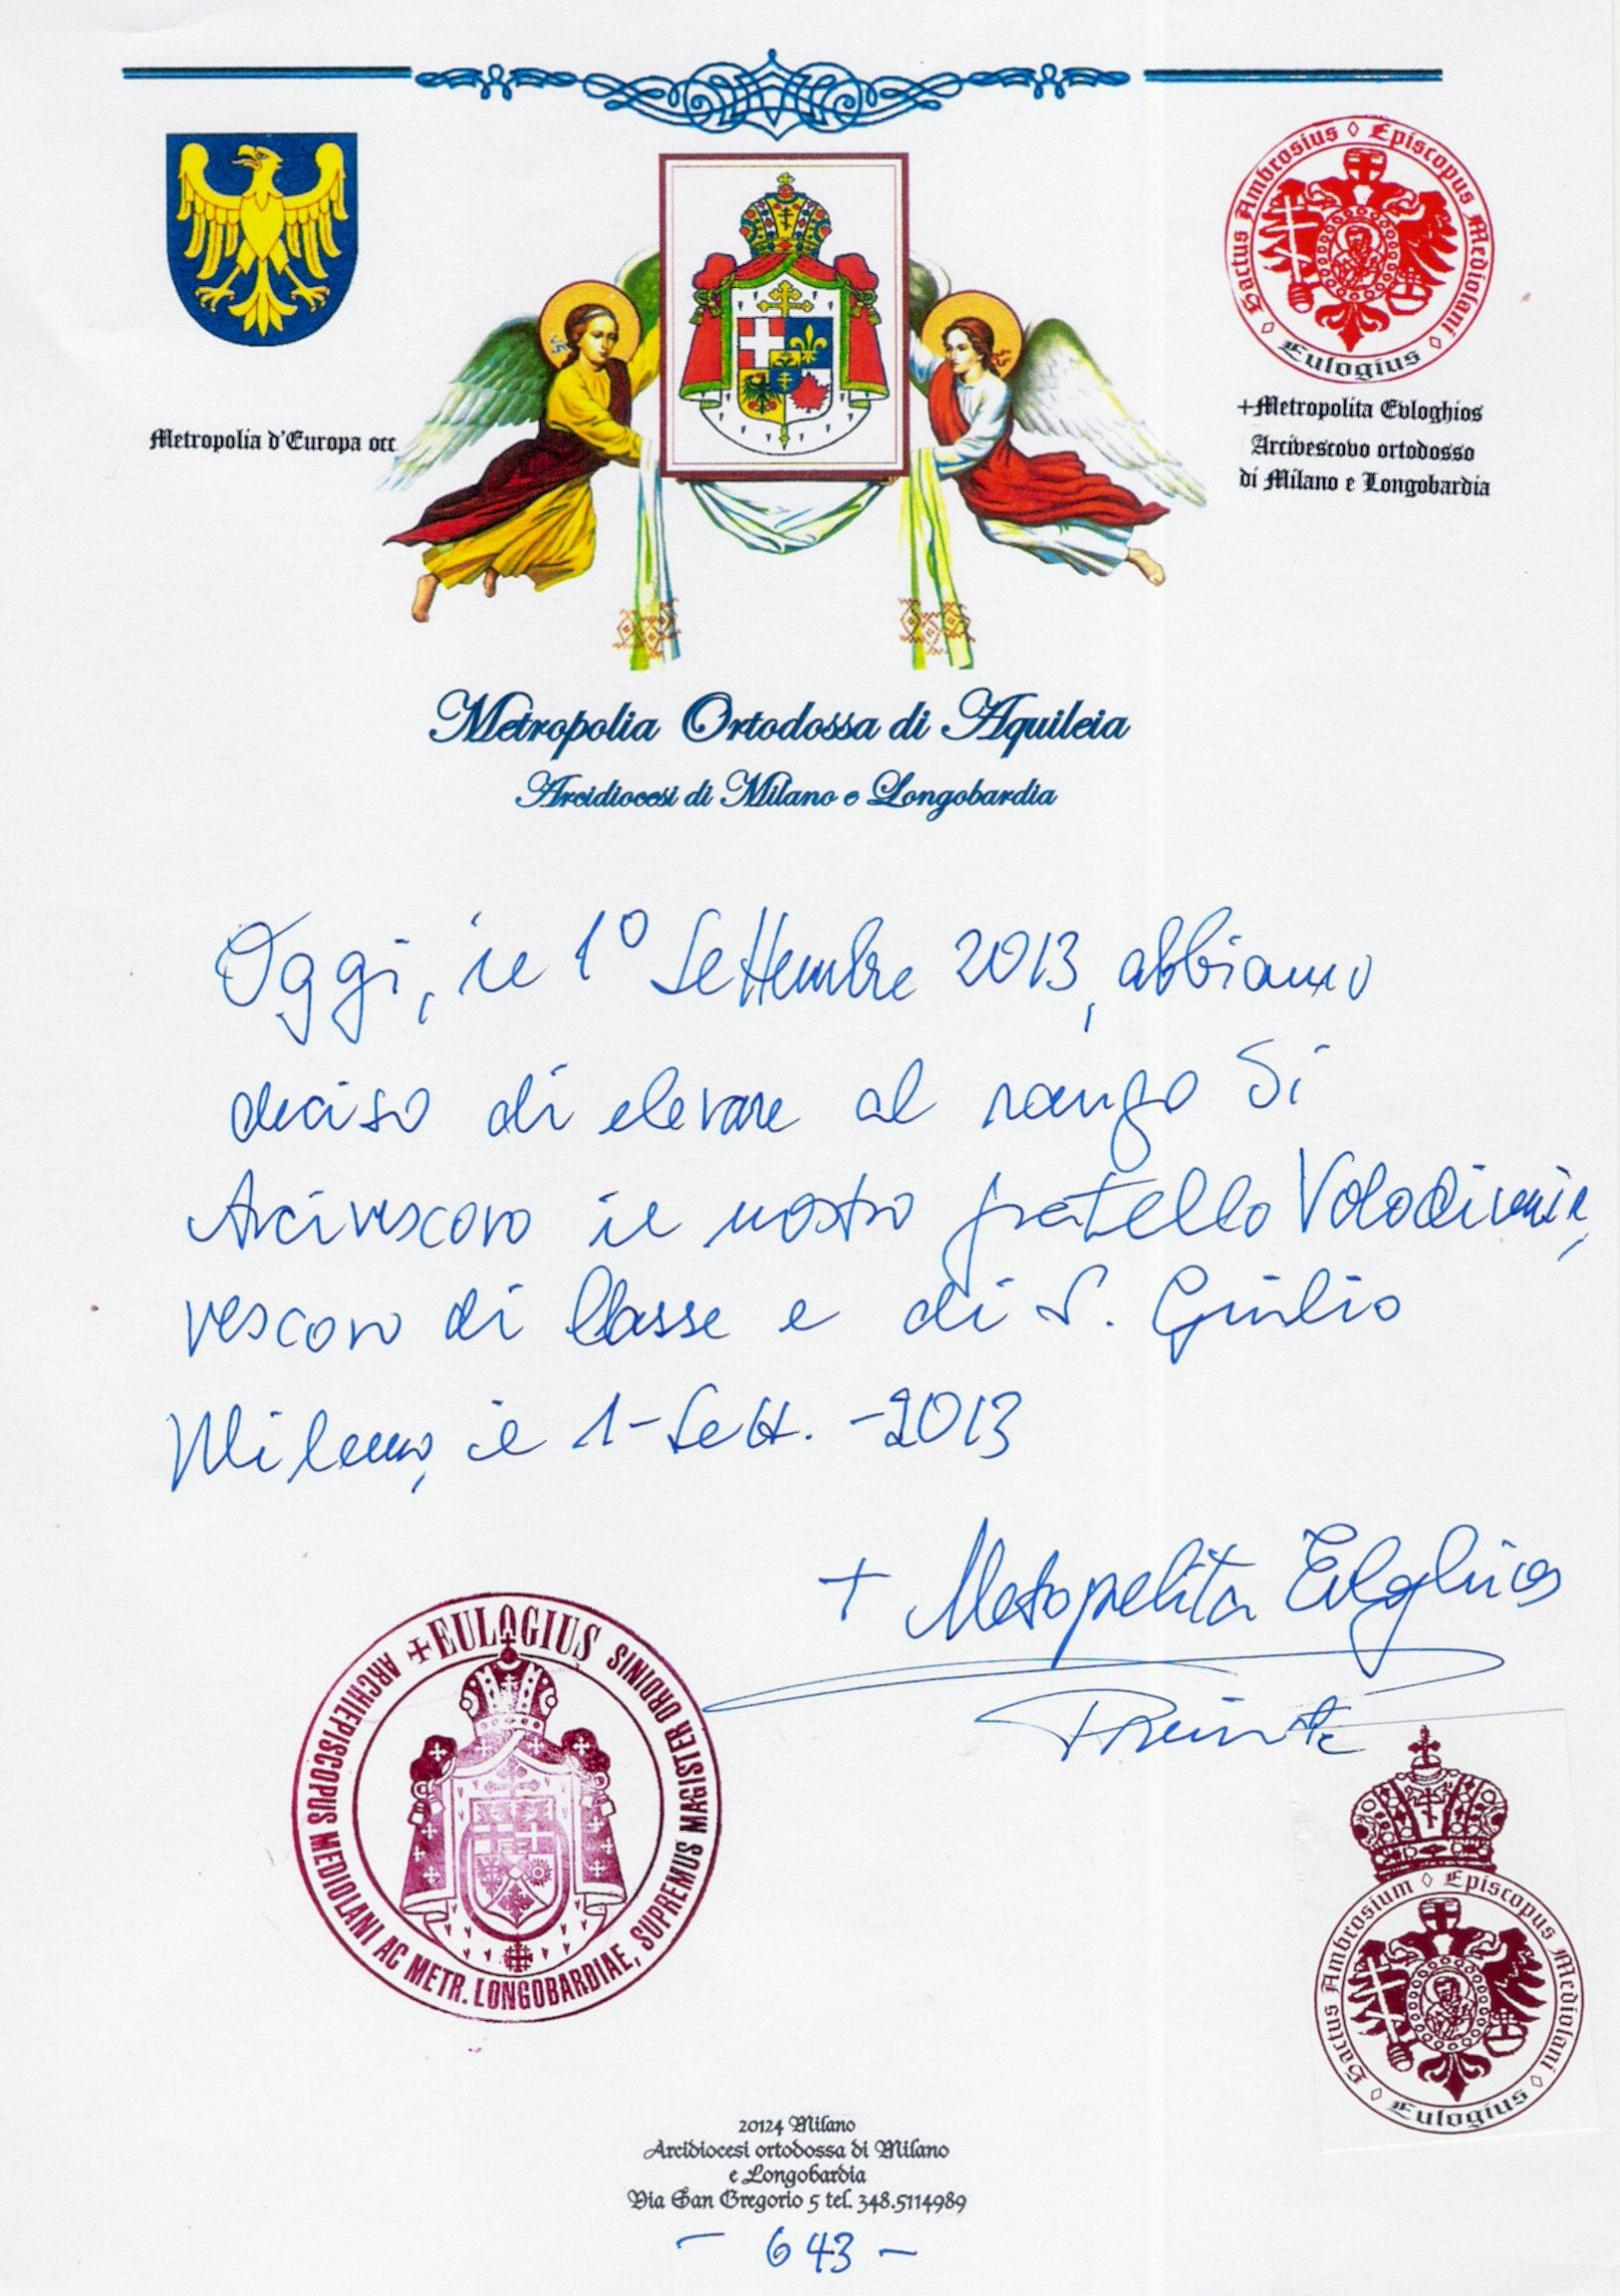 Sactus Ambrosius ◊ Episcopus Mediolani ◊
Eulogius
Metropolia d'Europa occ
+Metropolita Evloghios
Arcivescovo ortodosso
di Milano e Longobardia
Metropolia Ortodossa di Aquileia
Arcidiocesi di Milano e Longobardia
Oggi, il 1° Settembre 2013, abbiamo
deciso di elevare al rango di
Arcivescovo il nostro fratello Volodimir,
vescovo di Classe e di S. Giulio
Milano, il 1-Sett.-2013
+ Metropolita Evloghios
✠EULOGIUS
ARCHIEPISCOPUS MEDIOLANI AC METR. LONGOBARDIAE, SUPREMUS MAGISTER ORDINIS
Sactus Ambrosium ◊ Episcopus Mediolani ◊
Eulogius
20124 Milano
Arcidiocesi ortodossa di Milano
e Longobardia
Via San Gregorio 5 tel. 348.5114989
- 643 -